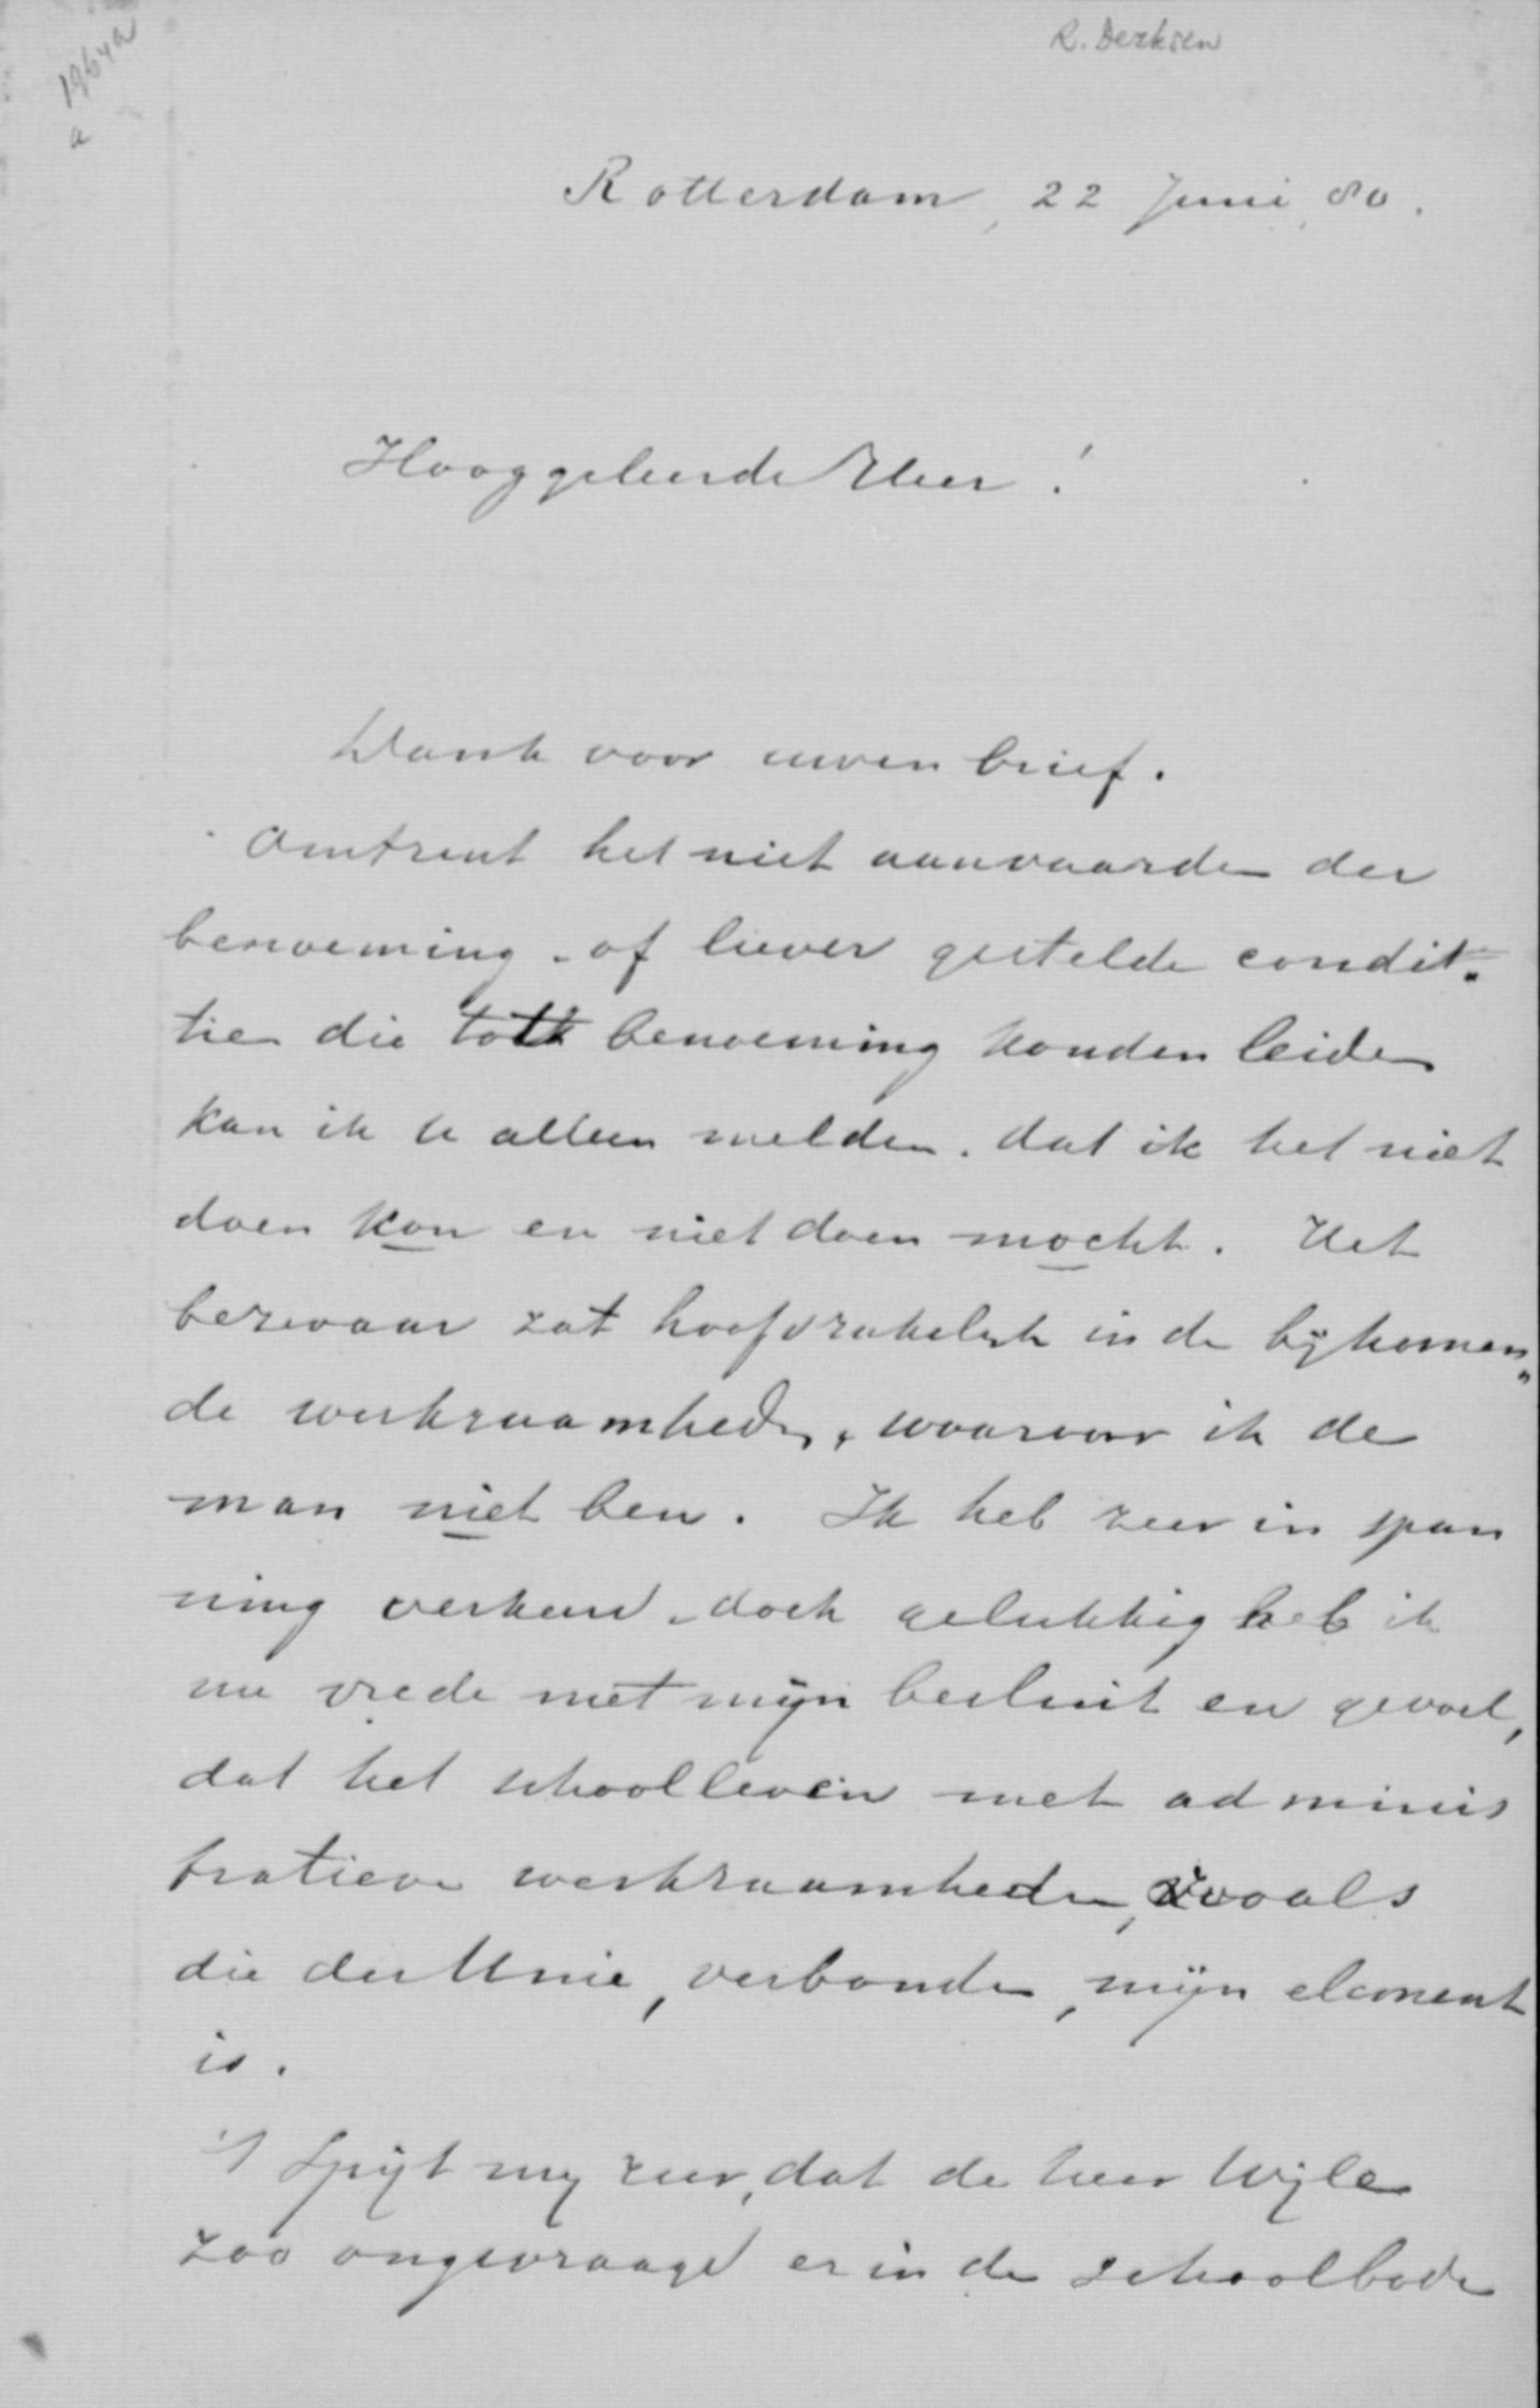 R. Derksen
1964a
a
Rotterdam, 22 Juni, 80.
Hooggeleerde Heer!
Dank voor uwen brief.
Omtrent het niet aanvaarden der
benoeming - of liever gestelde condit„
tien die tot benoeming konden leiden
kan ik u alleen melden. dat ik het niet
doen kon en niet doen mocht. Het
bezwaar zat hoofdzakelijk in de bijkomen„
de werkzaamheden, waarvoor ik de
man niet ben. Ik heb zeer in span
ning verkeerd, doch gelukkig heb ik
nu vrede met mijn besluit en gevoel,
dat het schoolleven met adminis
tratieve werkzaamheden, zooals
die der Unie, verbonden, mijn element
is.
't Spijt mij zeer, dat de heer Wijle
zoo ongevraagd er in de schoolbode